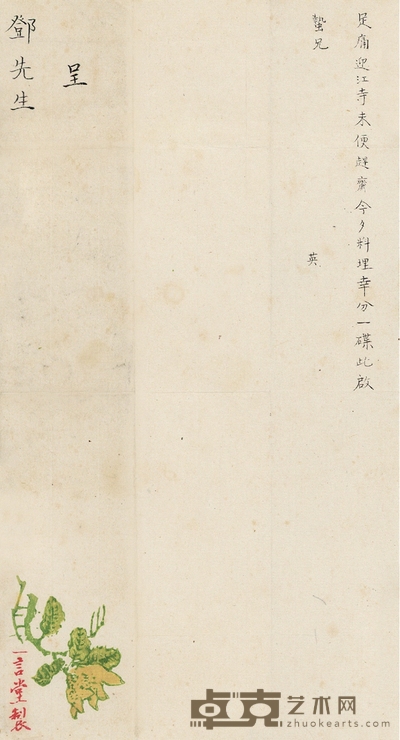 足痛迎江寺未便趍齋今夕料理幸分一碟此啟
蟄兄
英
呈
鄧先生
一言堂製
卓克艺术网
zhuokearts.com